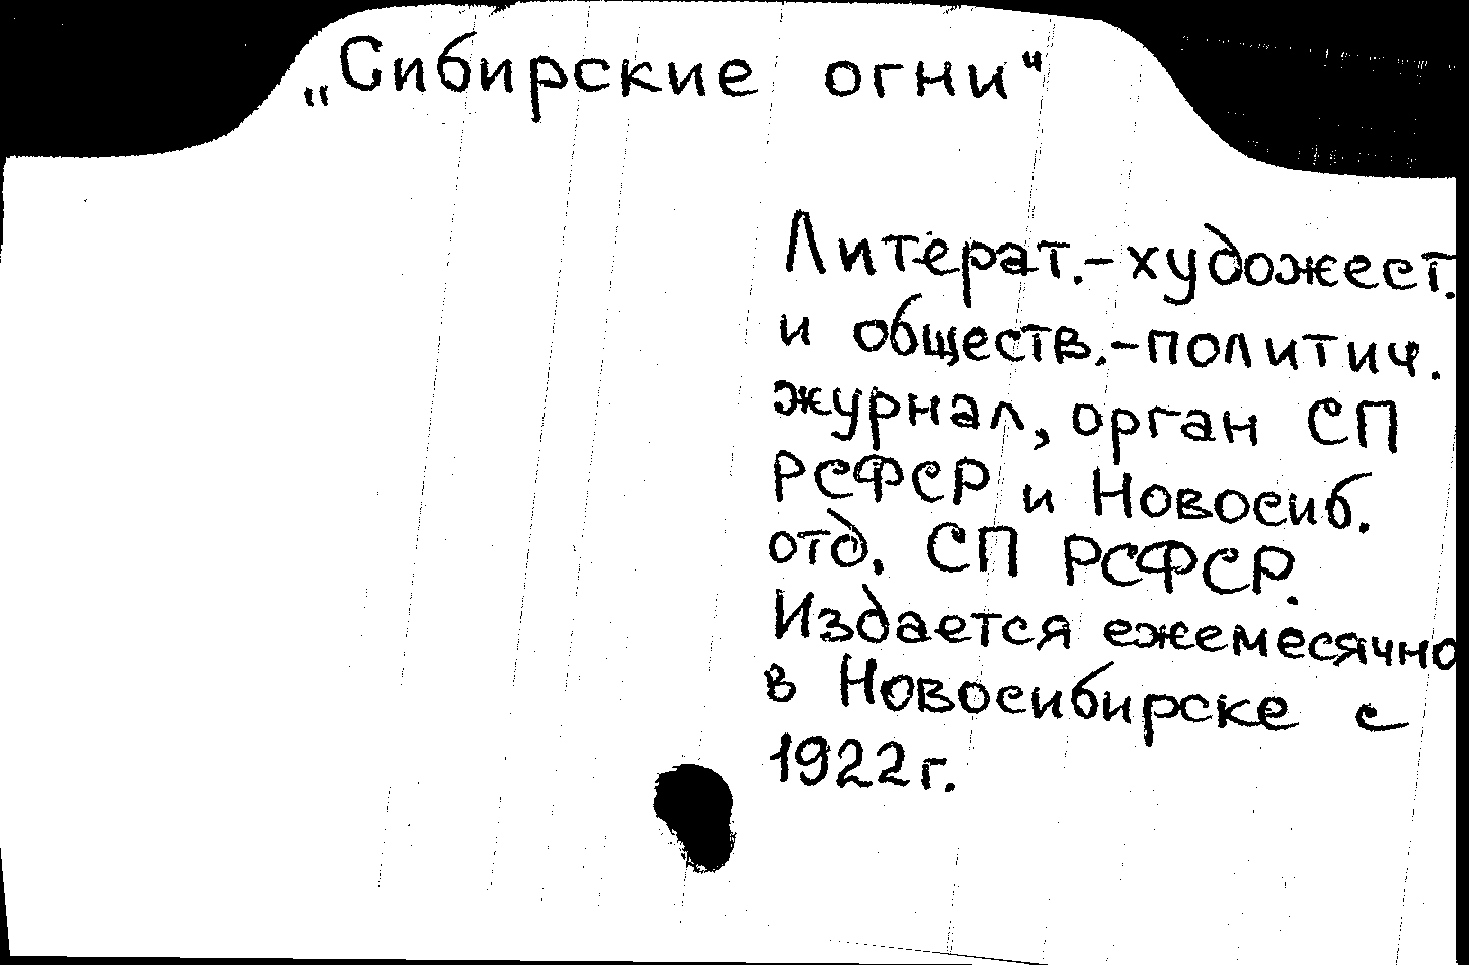 „Сибирские огни“
Литерат.-художест.
и обществ.-политич.
журнал, орган СП
РСФСР и Новосиб.
отд. СП РСФСР.
Издается ежемесячно
в Новосибирске с
1922г.